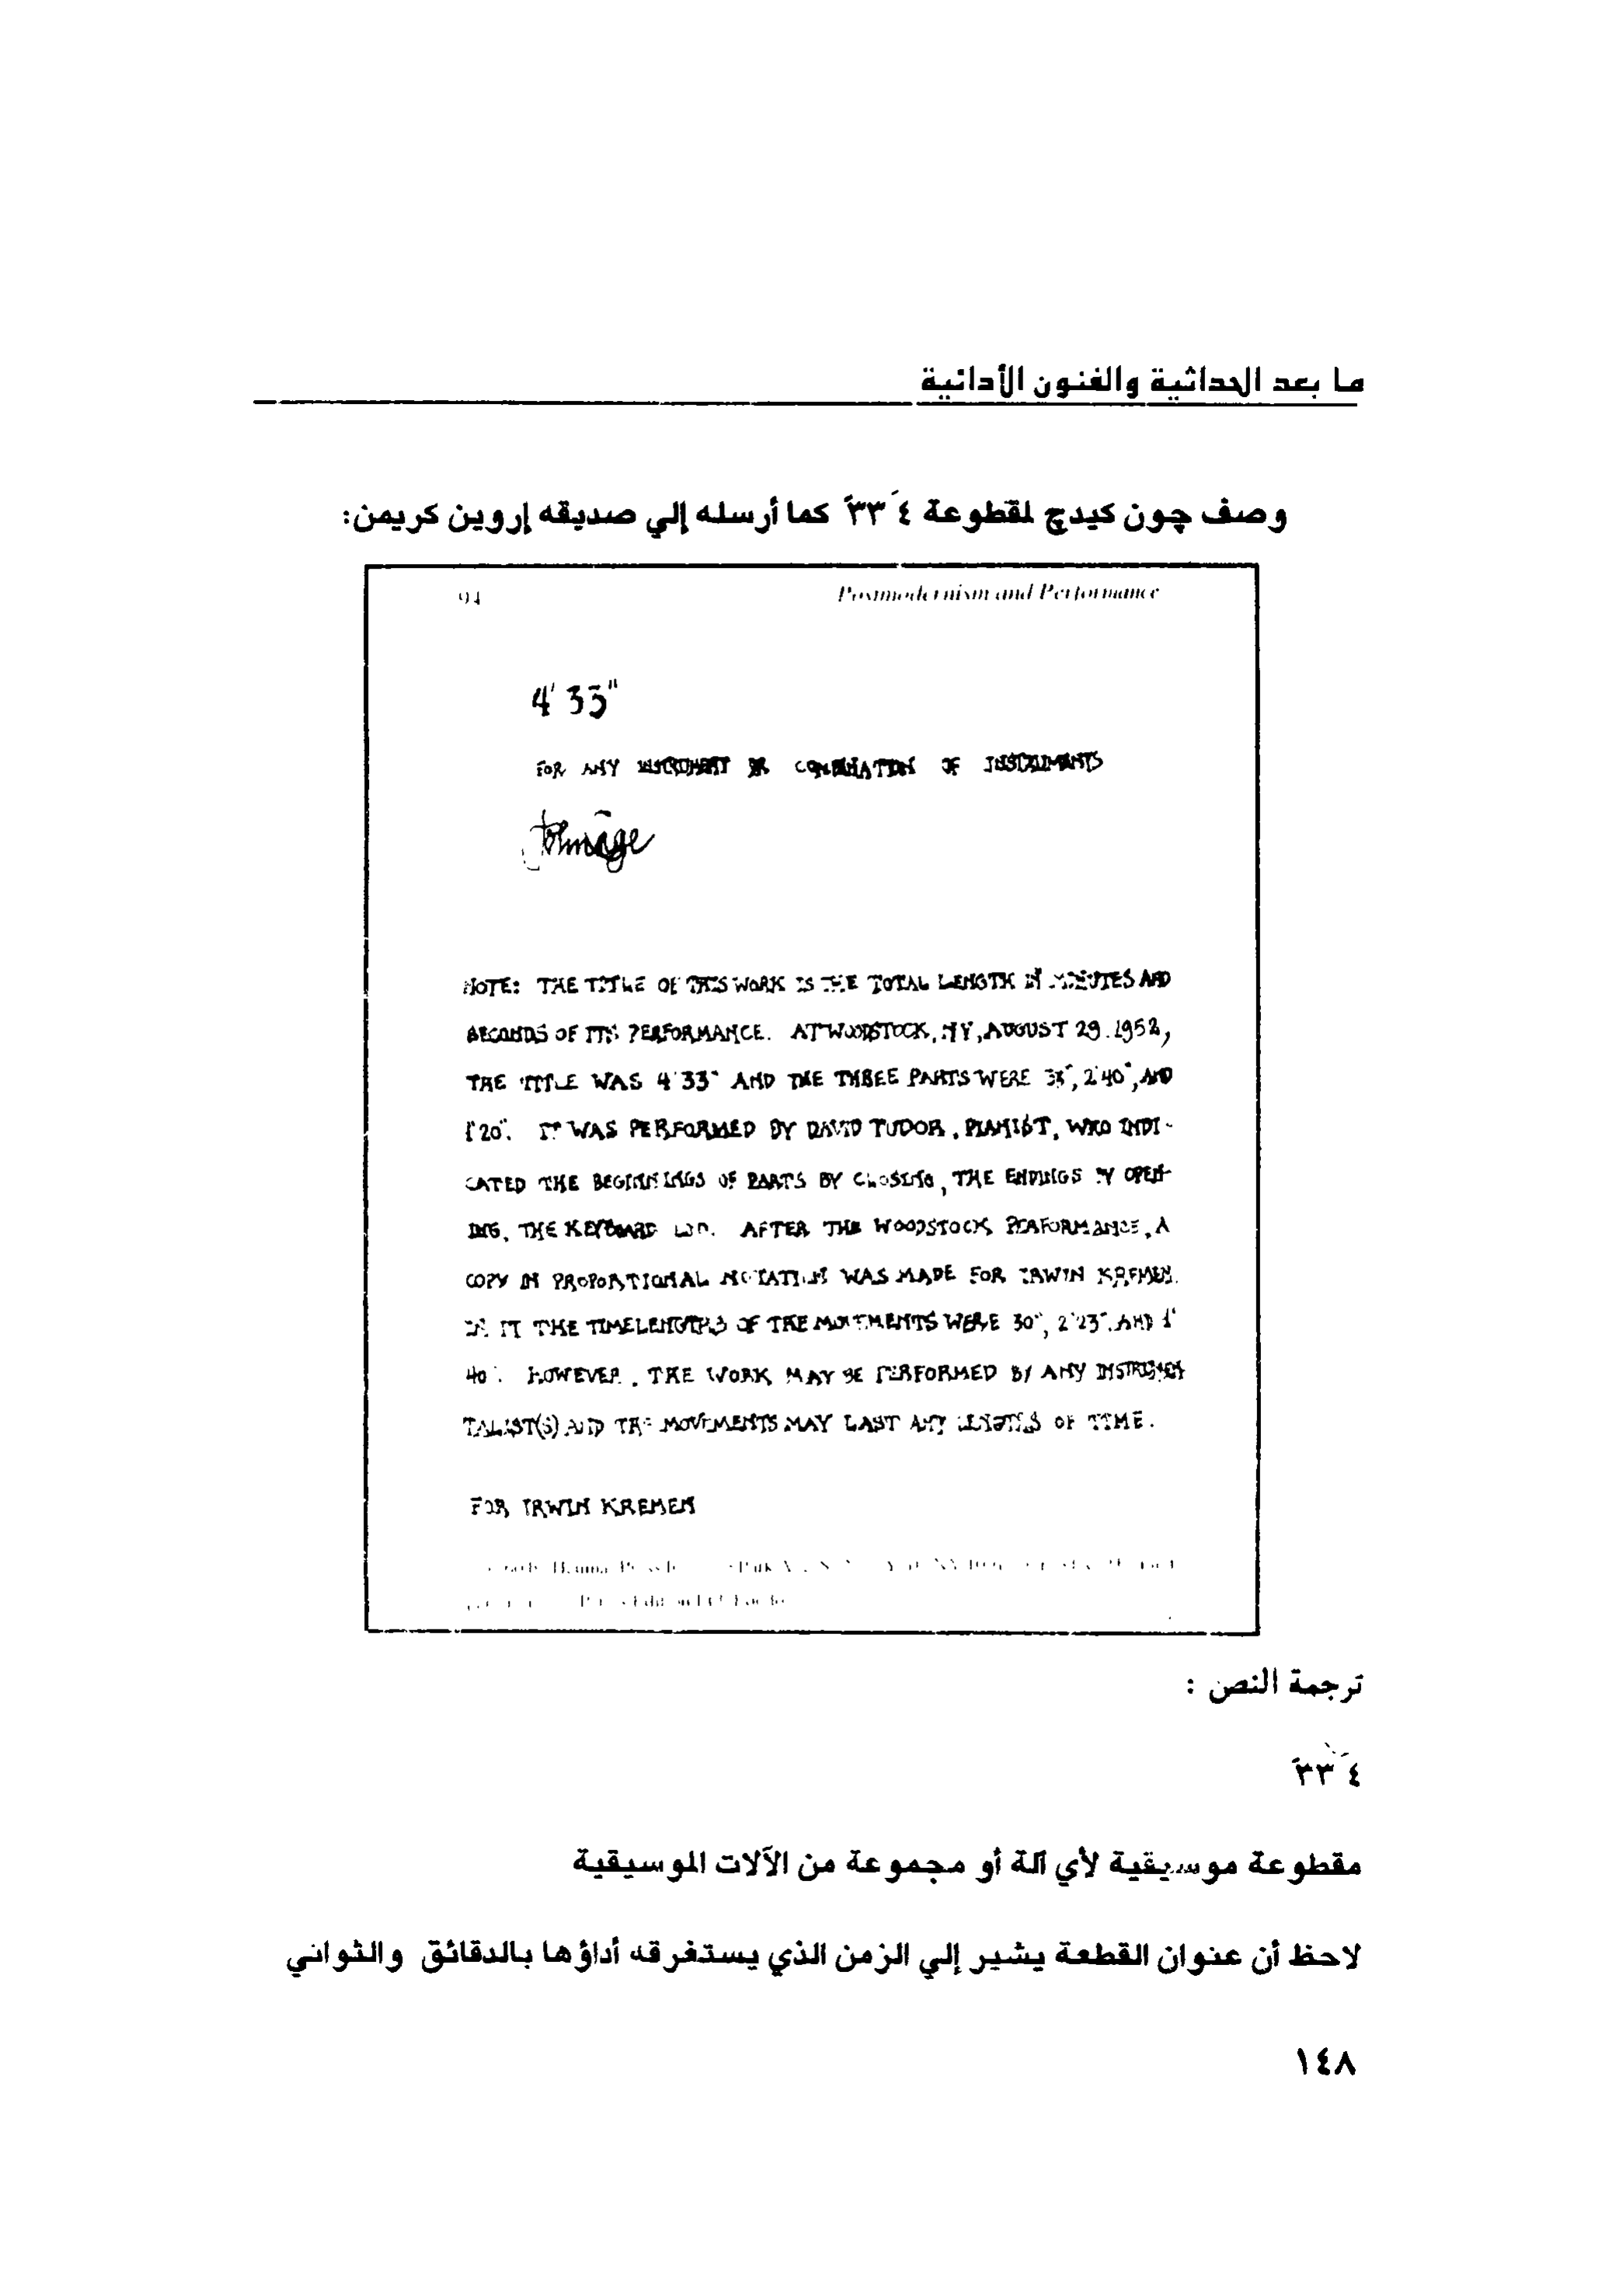 ما بعد الحداثية والفنون الأدائية
وصف چون كيدچ لمقطوعة ٤َ ٣٣ً كما أرسله إلي صديقه إروين كريمن:
94 Postmodernism and Performance
4' 33"
FOR ANY INSTRUMENT OR COMBINATION OF INSTRUMENTS
John Cage
NOTE: THE TITLE OF THIS WORK IS THE TOTAL LENGTH IN MINUTES AND
SECONDS OF ITS PERFORMANCE. AT WOODSTOCK, NY, AUGUST 29, 1952,
THE TITLE WAS 4'33" AND THE THREE PARTS WERE 33", 2'40", AND
1'20". IT WAS PERFORMED BY DAVID TUDOR, PIANIST, WHO INDI-
CATED THE BEGINNINGS OF PARTS BY CLOSING, THE ENDINGS BY OPEN-
ING, THE KEYBOARD LID. AFTER THE WOODSTOCK PERFORMANCE, A
COPY IN PROPORTIONAL NOTATION WAS MADE FOR IRWIN KREMEN.
IN IT THE TIMELENGTHS OF THE MOVEMENTS WERE 30", 2'23", AND 1'
40". HOWEVER, THE WORK MAY BE PERFORMED BY ANY INSTRUMEN
TALIST(S) AND THE MOVEMENTS MAY LAST ANY LENGTHS OF TIME.
FOR IRWIN KREMEN
ترجمة النص :
٤َ ٣٣ً
مقطوعة موسيقية لأي آلة أو مجموعة من الآلات الموسيقية
لاحظ أن عنوان القطعة يشير إلي الزمن الذي يستغرقه أداؤها بالدقائق والثواني
١٤٨